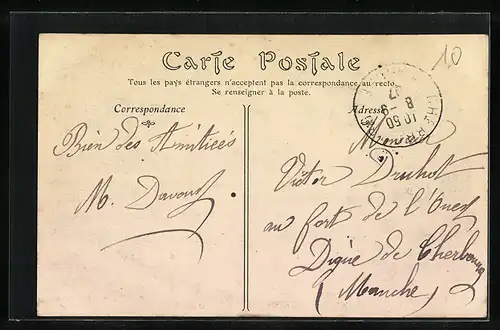 10
Carte Postale
Tous les pays étrangers n'acceptent pas la correspondance au recto.
Se renseigner à la poste.
Correspondance
Adresse
10 50
Bien des Amitiées
M. Davoust
Monsieur
Victor Druhot
au fort de l'Ouest
Digue de Cherbourg
(Manche)